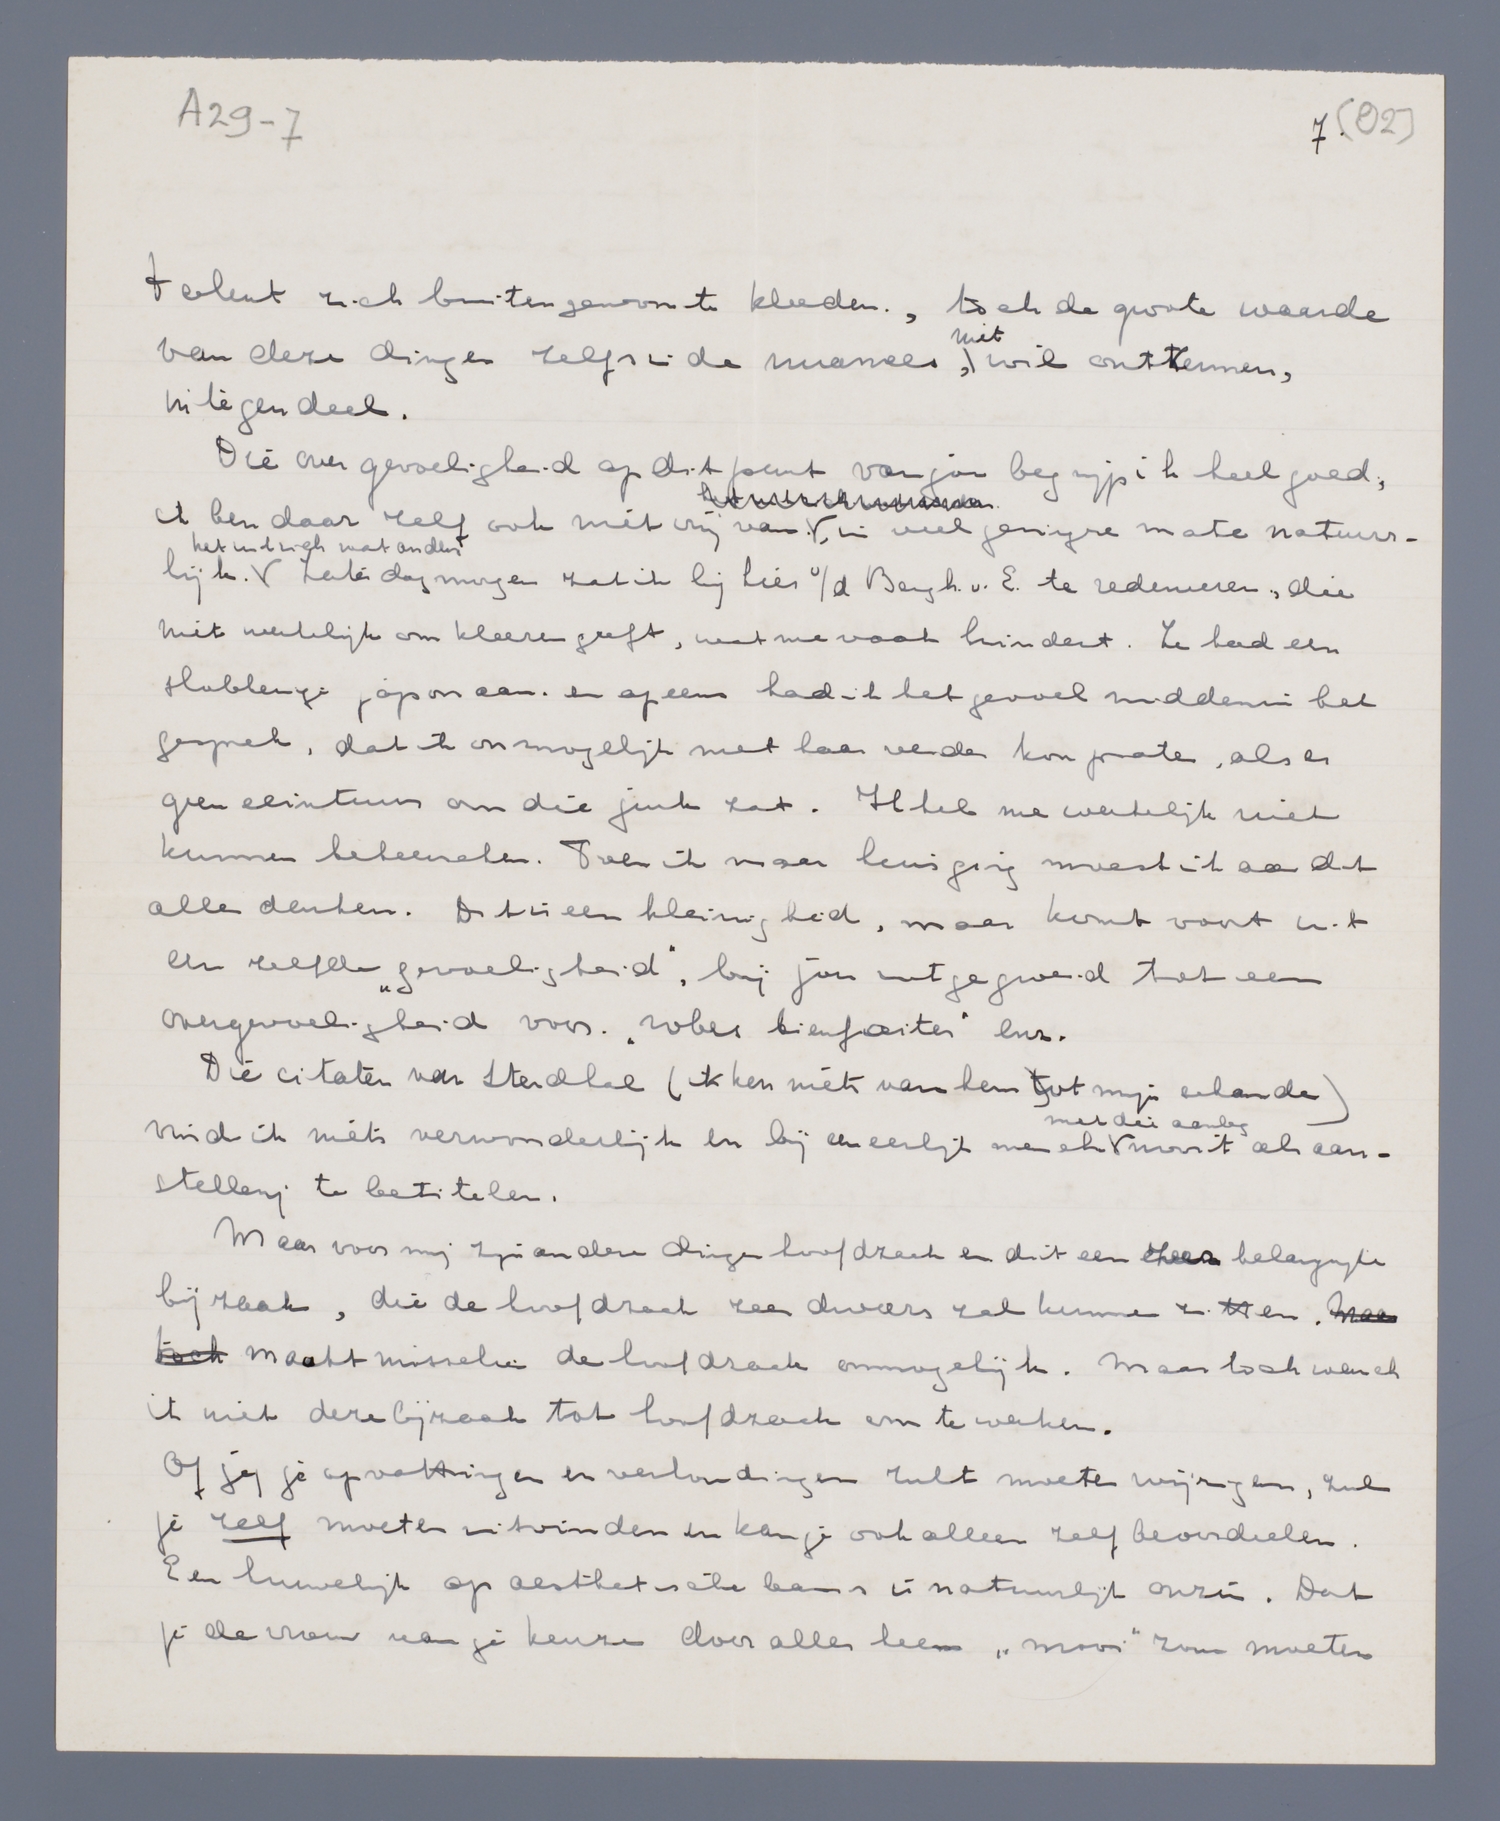 A29-7
7. (02)
talent zich buitengewoon te kleeden., toch de groote waarde
van deze dingen zelfs in de nuances, niet wil ontkennen,
integendeel.
Die overgevoeligheid op dit punt van jou begrijp ik heel goed,
ik ben daar zelf ook niet vrij van, in veel geringere mate natuur-
het uit zich wat anders
lijk. Zaterdagmorgen zat ik bij Lies v/d Bergh. v. E. te redeneeren, die
niet werkelijk om kleeren geeft, wat me vaak hindert. Ze had een
slobberige japon aan. en opeens had ik het gevoel midden in het
gesprek, dat ik onmogelijk met haar verder kon praten, als er
geen ceintuur om die jurk zat. Ik heb me werkelijk niet
kunnen beheerschen. Toen ik naar huis ging moest ik aan dit
alles denken. Dit is een kleinigheid, maar komt voort uit
een zelfde „gevoeligheid", bij jou uitgegroeid tot een
overgevoeligheid voor. „robes bienfaites" enz.
Die citaten van Stendhal (ik ken niets van hem tot mijn schande)
vind ik niets verwonderlijk en bij een eerlijk mensch met die aanleg nooit als aan-
stellerij te betitelen.
Maar voor mij zijn andere dingen hoofdzaak en dit een zeer belangrijke
bijzaak, die de hoofdzaak zeer dwars zal kunnen zitten. Maar
toch maakt misschien de hoofdzaak onmogelijk. Maar toch wensch
ik niet deze bijzaak tot hoofdzaak om te werken.
Of jij je opvattingen en verhoudingen zult moeten wijzigen, zul
je zelf moeten uitvinden en kan je ook alleen zelf beoordeelen.
Een huwelijk op aesthetische basis is natuurlijk onzin. Dat
je de vrouw van je keuze door alles heen „mooi" zou moeten